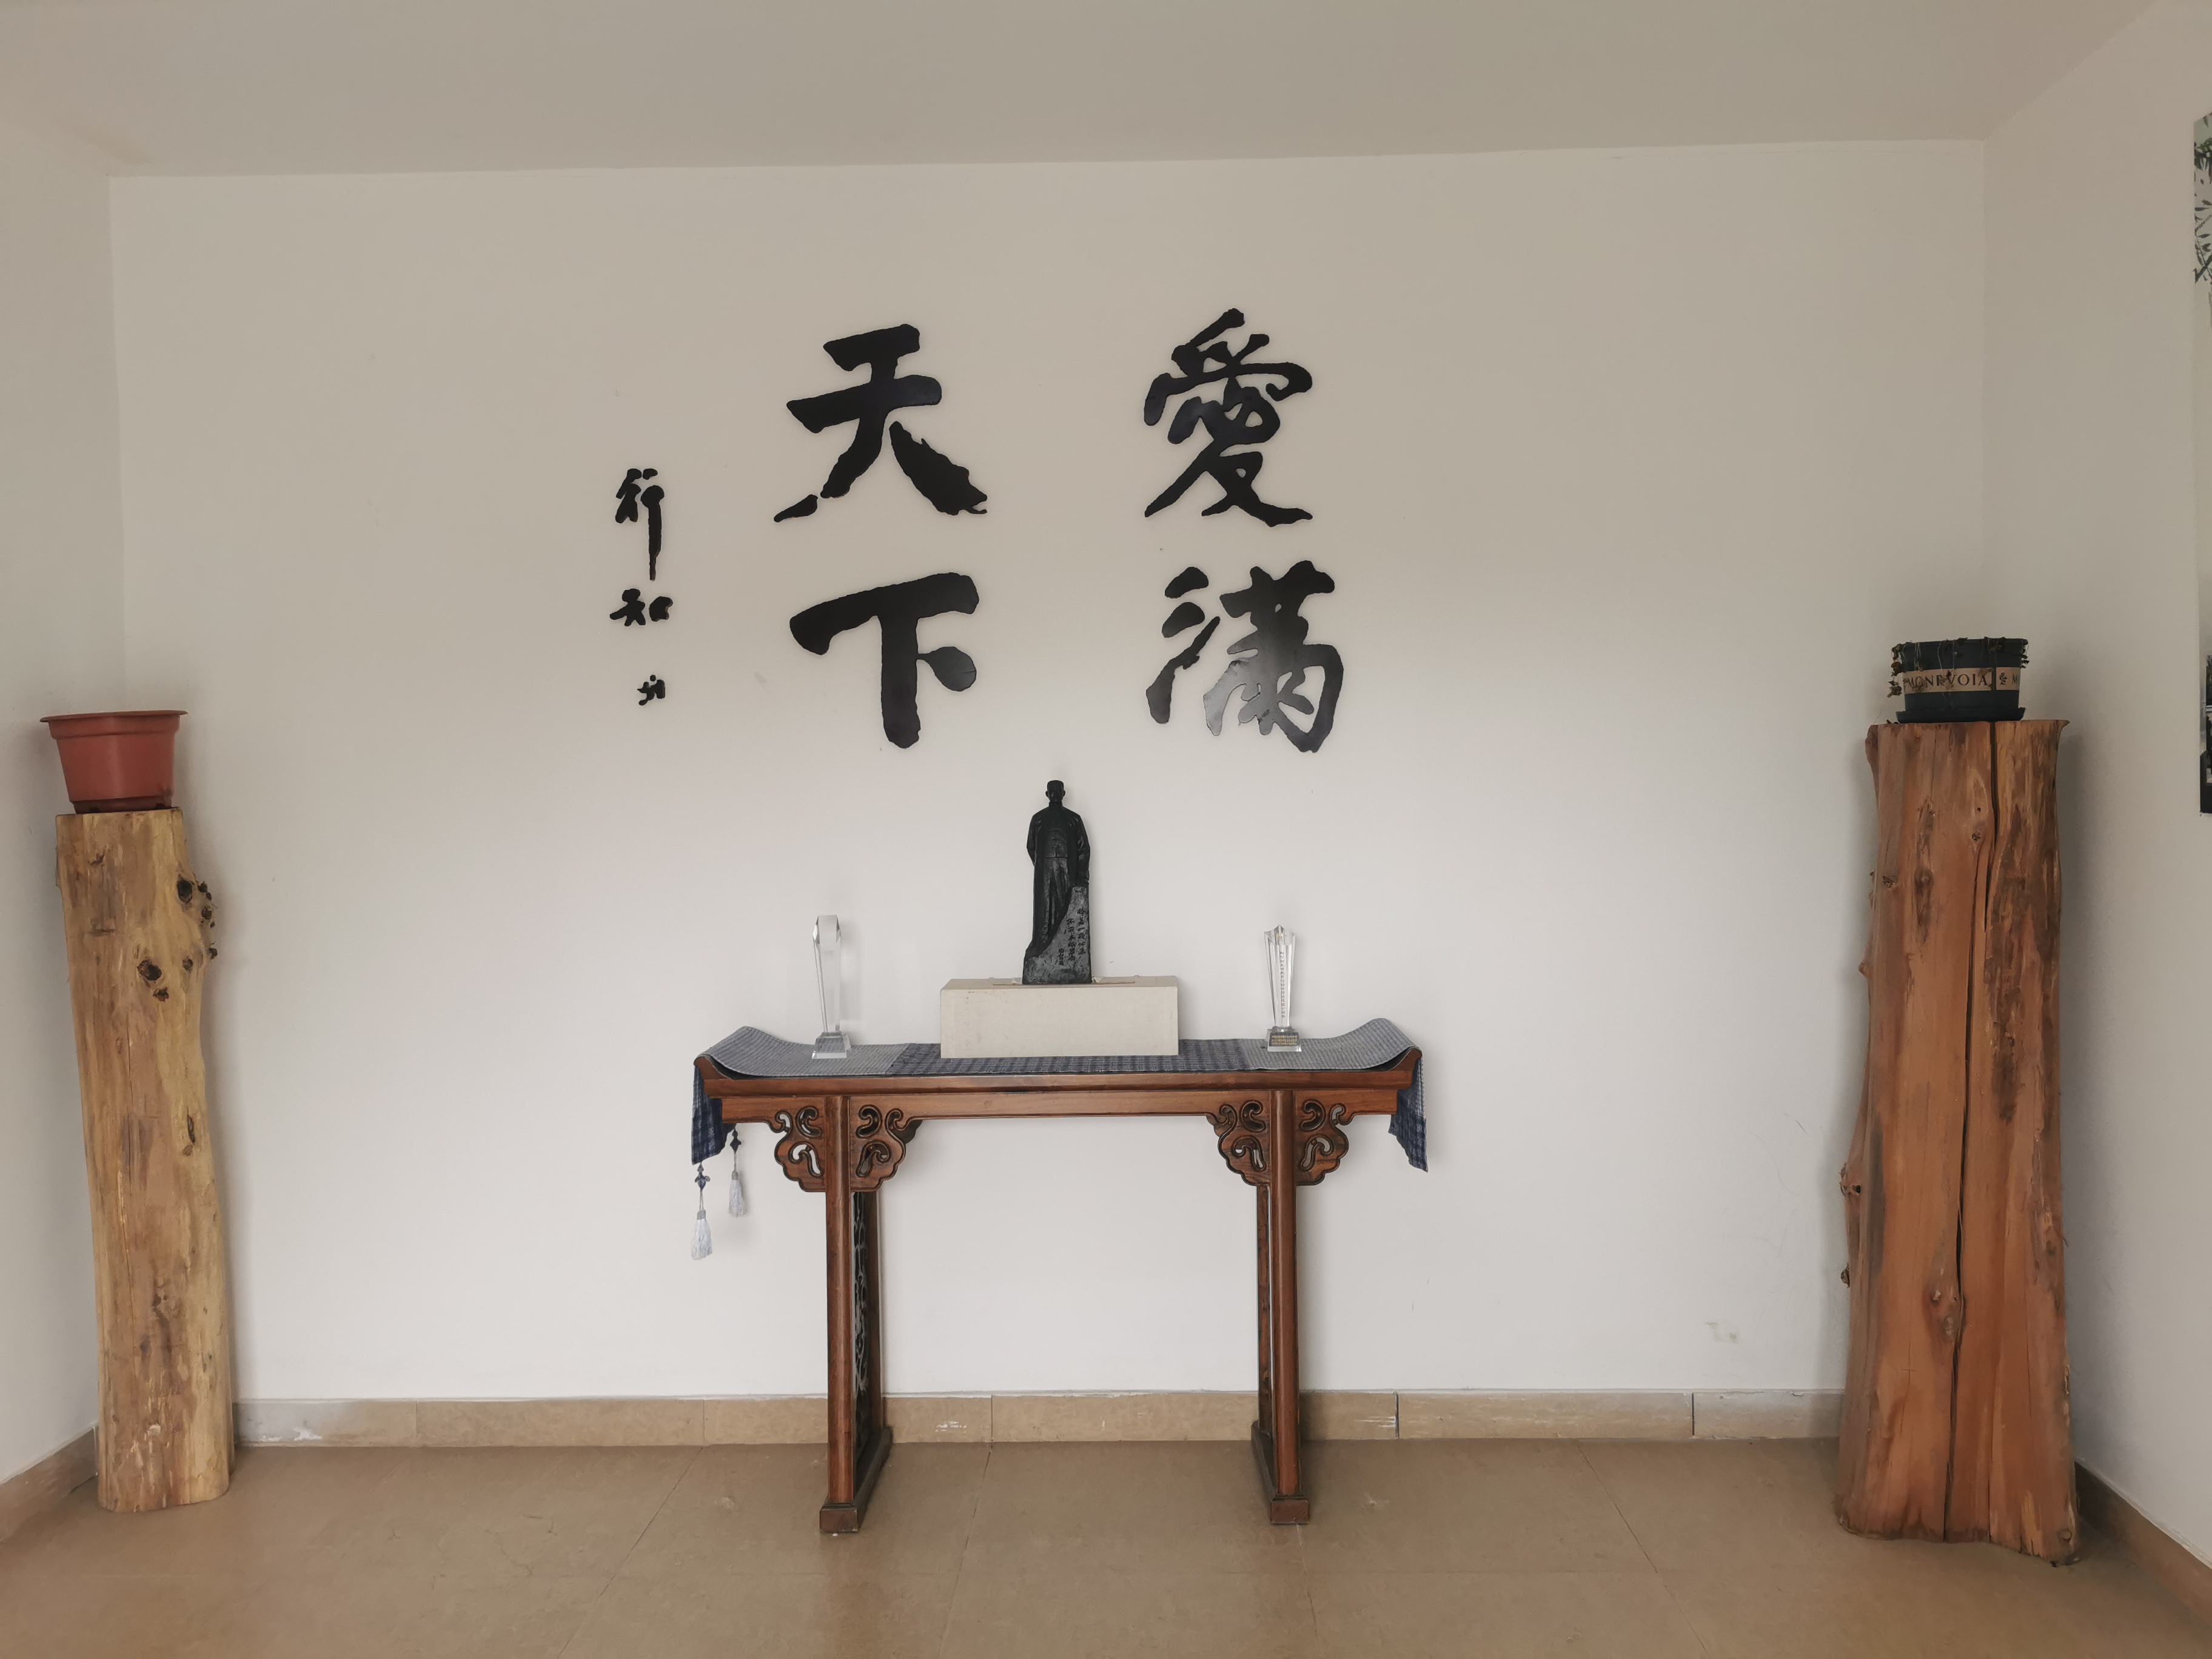 愛滿
天下
行知
MONRVOIA